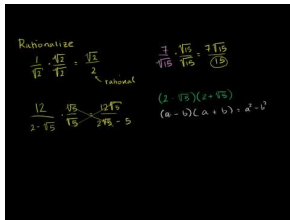 Rationalize
1/√2 · √2/√2 = √2/2
rational
7/√15 · √15/√15 = 7√15/15
12/(2-√5) · √5/√5 = 12√5/(2√5 - 5)
(2-√5)(2+√5)
(a - b)(a + b) = a² - b²